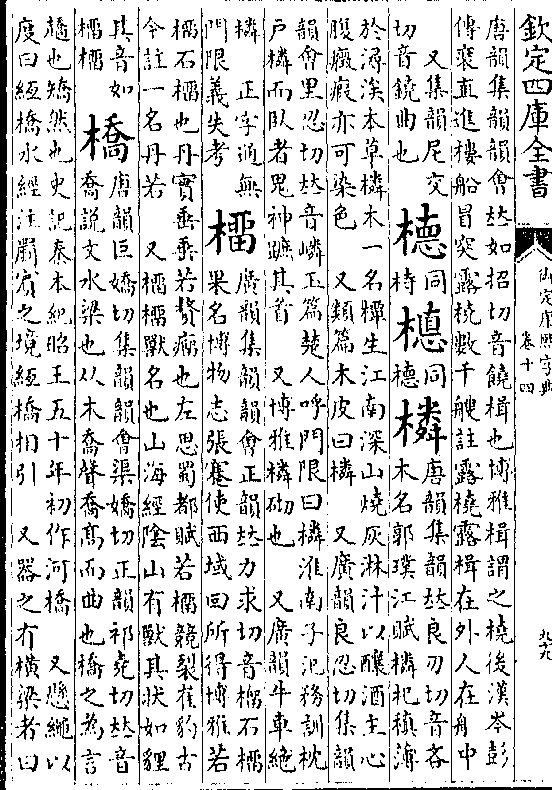 欽定四庫全書
御定康熙字典
卷十四
九十九
唐韻集韻韻會𠀤如招切音饒楫也博雅楫謂之橈後漢岑彭
傳裴直進樓船冒突露橈數千艘註露橈露楫在外人在船中
又集韻尼交
切音鐃曲也
橞同
橞
橞同
橞
橉
唐韻集韻𠀤良刃切音吝
木名郭璞江賦橉杞稹薄
於潯涘本草橉木一名橝生江南深山燒灰淋汁以釀酒主心
腹癥瘕亦可染色 又類篇木皮曰橉 又廣韻良忍切集韻
韻會里忍切𠀤音嶙玉篇楚人呼門限曰橉淮南子氾務訓枕
戶橉而臥者鬼神蹠其首 又博雅橉砌也 又廣韻牛車絶
橉 正字通無
門限義失考
橊
廣韻集韻韻會正韻𠀤力求切音榴石橊
果名博物志張騫使西域回所得博雅若
橊石橊也丹實垂垂若贅瘤也左思蜀都賦若橊競裂崔豹古
今註一名丹若 又橊橊獸名也山海經陰山有獸其狀如貍
其音如
橊橊
橋
唐韻巨嬌切集韻韻會渠嬌切正韻祁堯切𠀤音
喬說文水梁也从木喬聲喬高而曲也橋之為言
趫也矯然也史記秦本紀昭王五十年初作河橋 又懸繩以
度曰絙橋水經注罽賓之境絙橋相引 又器之有橫梁者曰